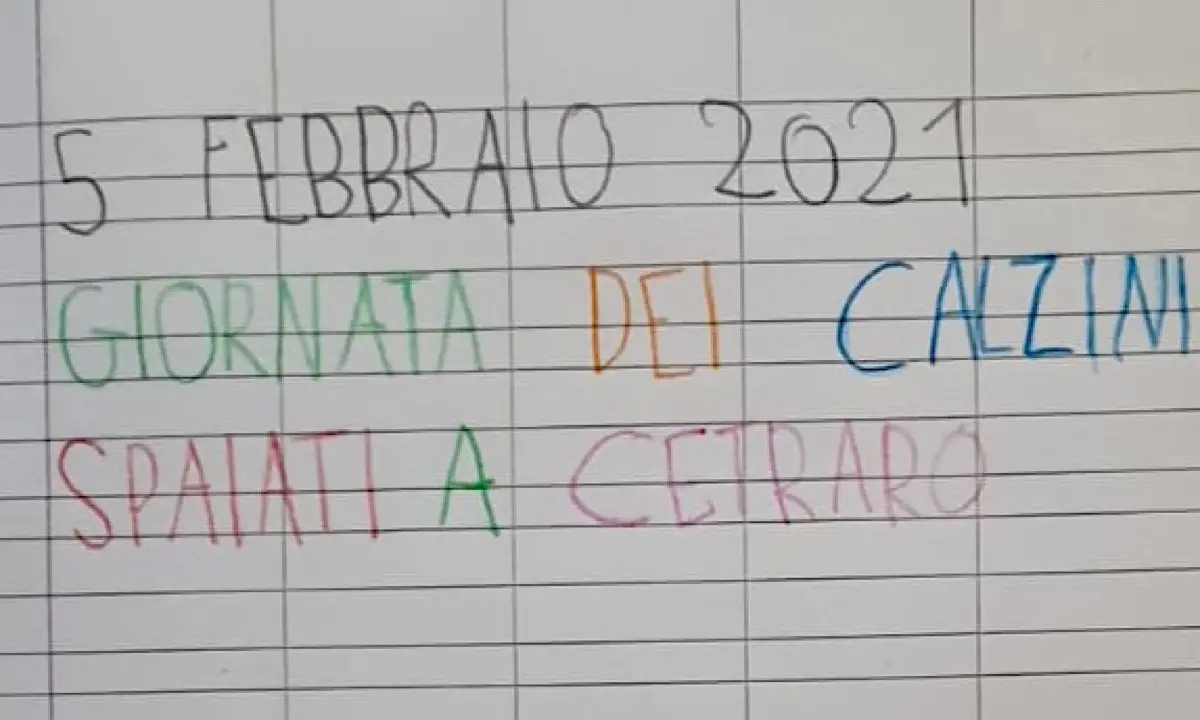 5 FEBBRAIO 2021
GIORNATA DEI CALZINI
SPAIATI A CETRARO